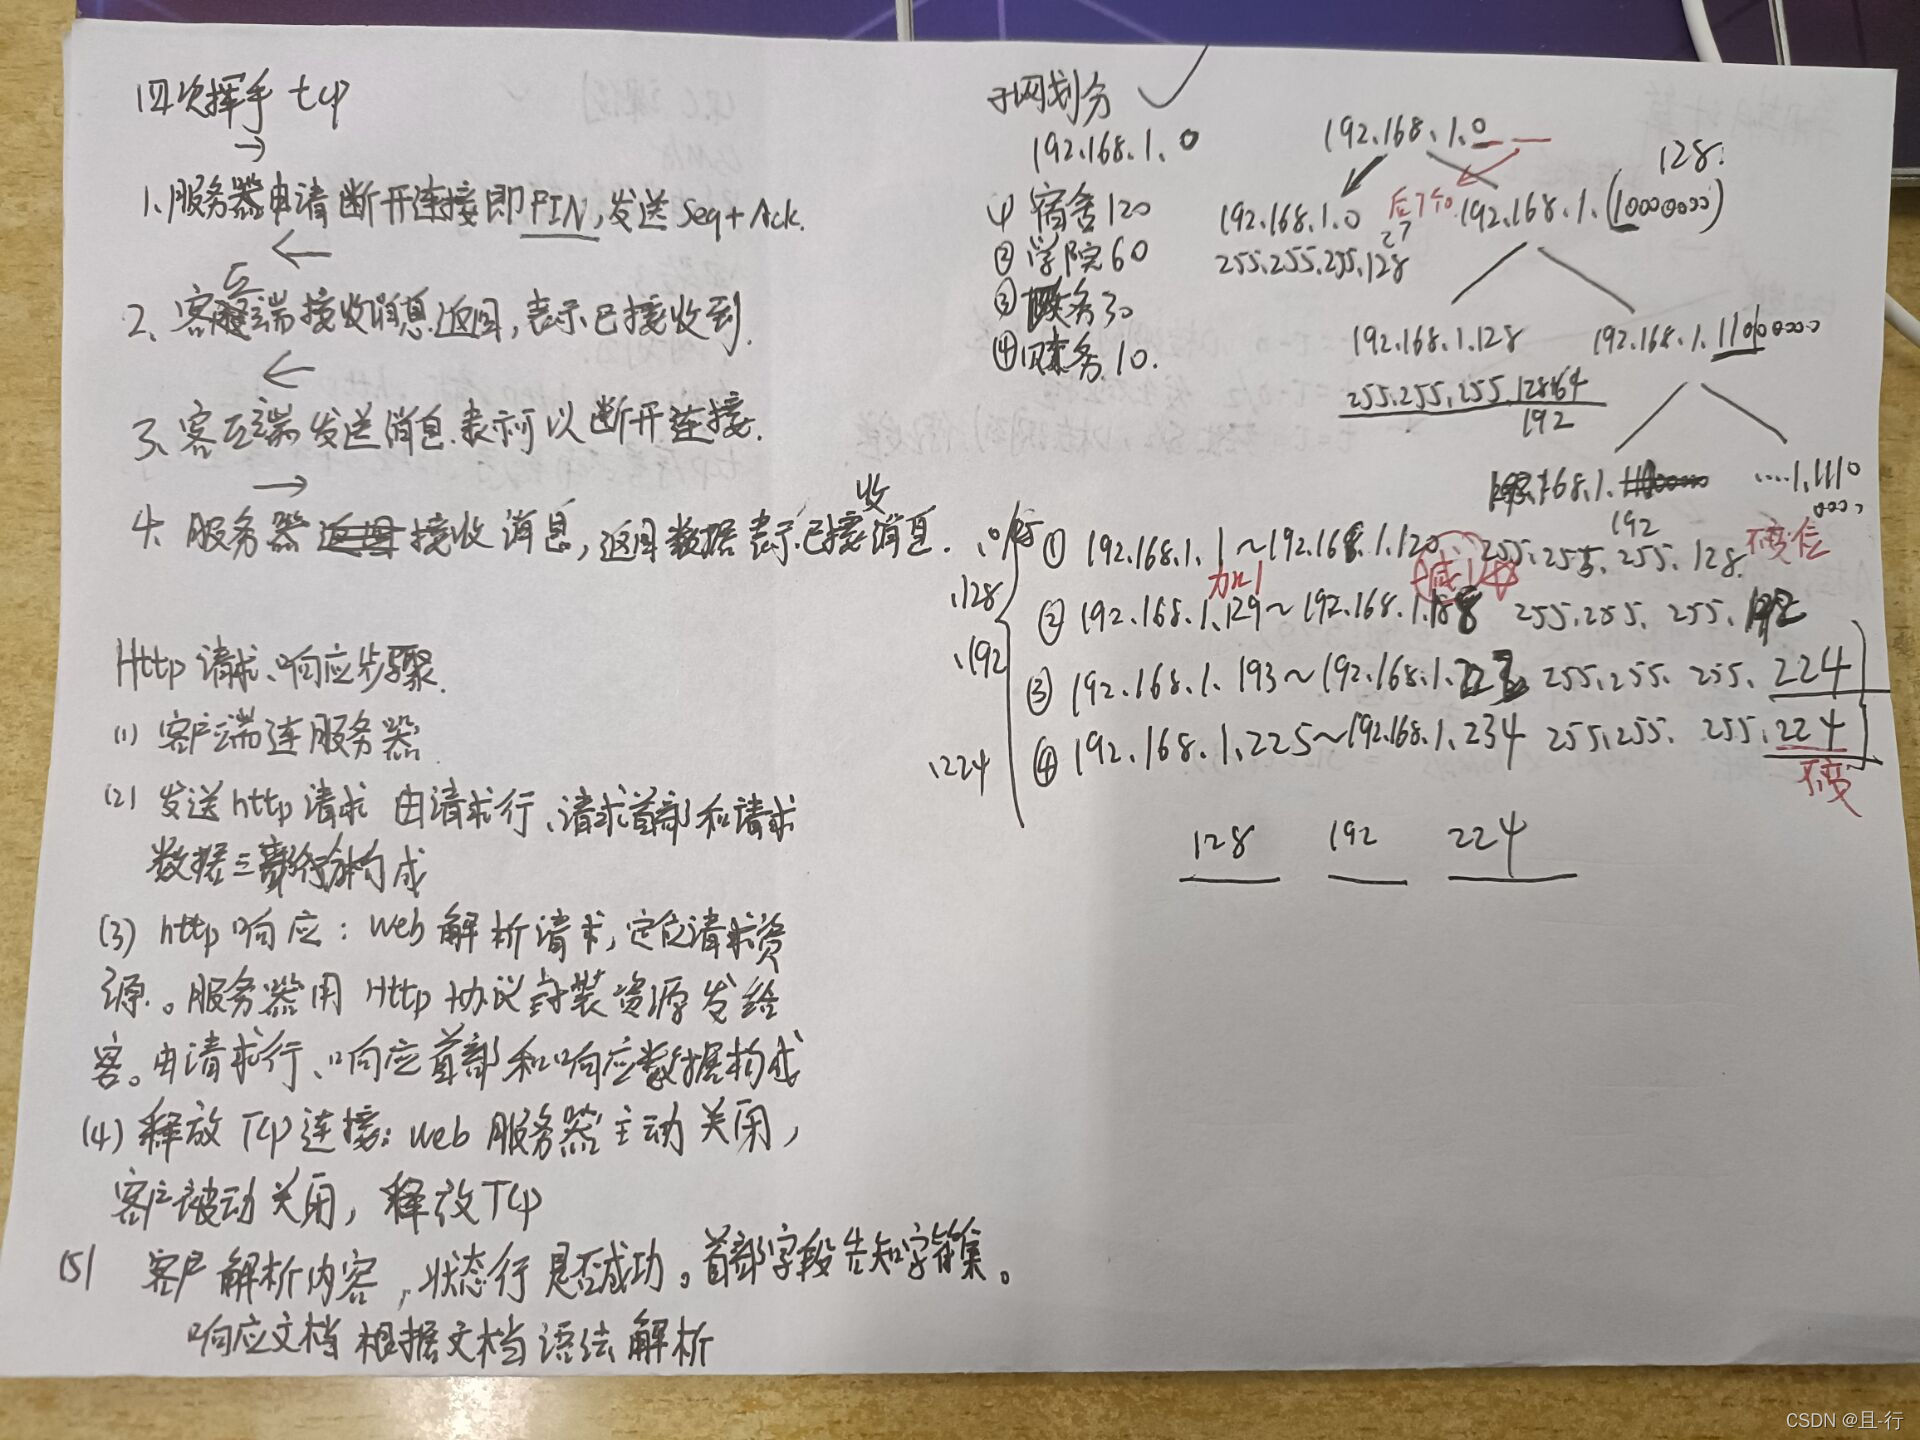 四次挥手 tcp
→
1、服务器申请断开连接即FIN,发送Seq+Ack.
←
2、客户端接收消息返回,表示已接收到.
←
3、客户端发送消息.表示可以断开连接.
→
4、服务器接收消息,返回数据表示已接收消息.
Http请求、响应步骤.
(1) 客户端连服务器
(2) 发送http请求 由请求行、请求首部和请求
数据三部分构成
(3) http响应: Web解析请求,定位请求资
源.。服务器用Http协议封装资源发给
客。由请求行、响应首部和响应数据构成
(4) 释放Tcp连接: web服务器主动关闭,
客户被动关闭,释放Tcp
(5) 客户解析内容,状态行是否成功。首部字段告知字符集。
响应文档根据文档语法解析
子网划分 ✓
192.168.1.0
① 宿舍120
② 学院60
③ 教务30
④ 财务10.
192.168.1.0
128.
192.168.1.0 后7个0 192.168.1.(10000000)
27
255.255.255.128
192.168.1.128 192.168.1.11000000
255.255.255.128+64
192
168.1.
192
....1.1110
0000
.0开始 ① 192.168.1.1~192.168.1.120 255.255.255.128.
加1 减1
.128 ② 192.168.1.129~192.168.1.188 255.255.255.192
.192 ③ 192.168.1.193~192.168.1. 255.255.255.224
.224 ④ 192.168.1.225~192.168.1.234 255.255.255.224
不变
128 192 224
CSDN @且-行